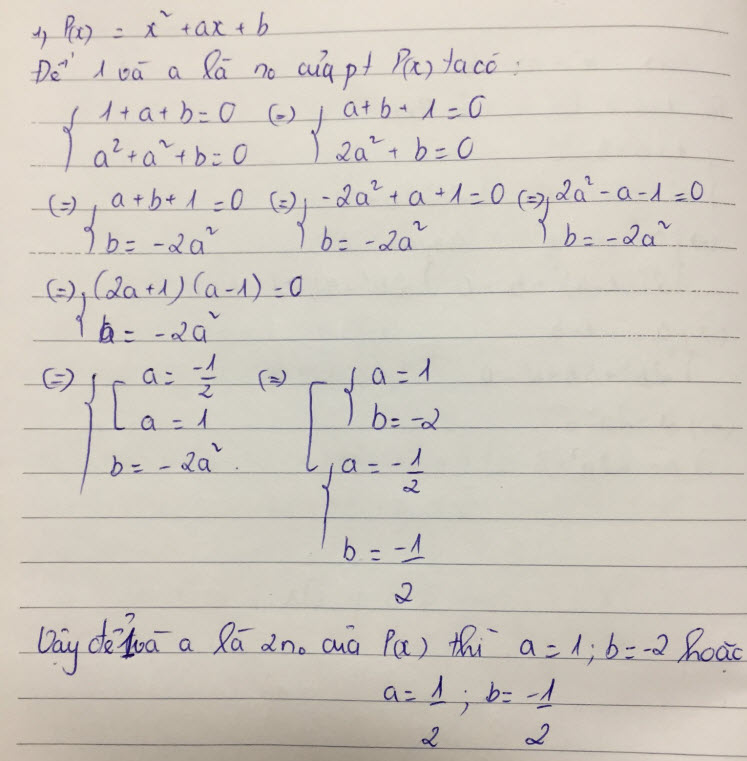 1, P(x) = x² + ax + b
Để 1 và a là n₀ của pt P(x) ta có:
{ 1 + a + b = 0 (=) { a + b + 1 = 0
a² + a² + b = 0 2a² + b = 0
(=) { a + b + 1 = 0 (=) { -2a² + a + 1 = 0 (=) { 2a² - a - 1 = 0
b = -2a² b = -2a² b = -2a²
(=) { (2a+1)(a-1) = 0
b = -2a²
(=) { [ a = -1/2 (=) [ { a = 1
a = 1 b = -2
b = -2a². { a = -1/2
b = -1/2
Vậy để 1 và a là 2 n₀ của P(x) thì a = 1; b = -2 hoặc
a = 1/2; b = -1/2